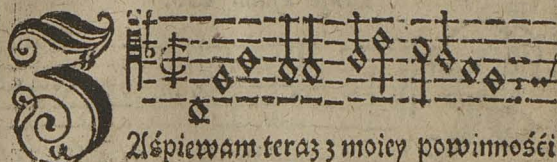 ZAśpiewam teraz z moiey powinnośći